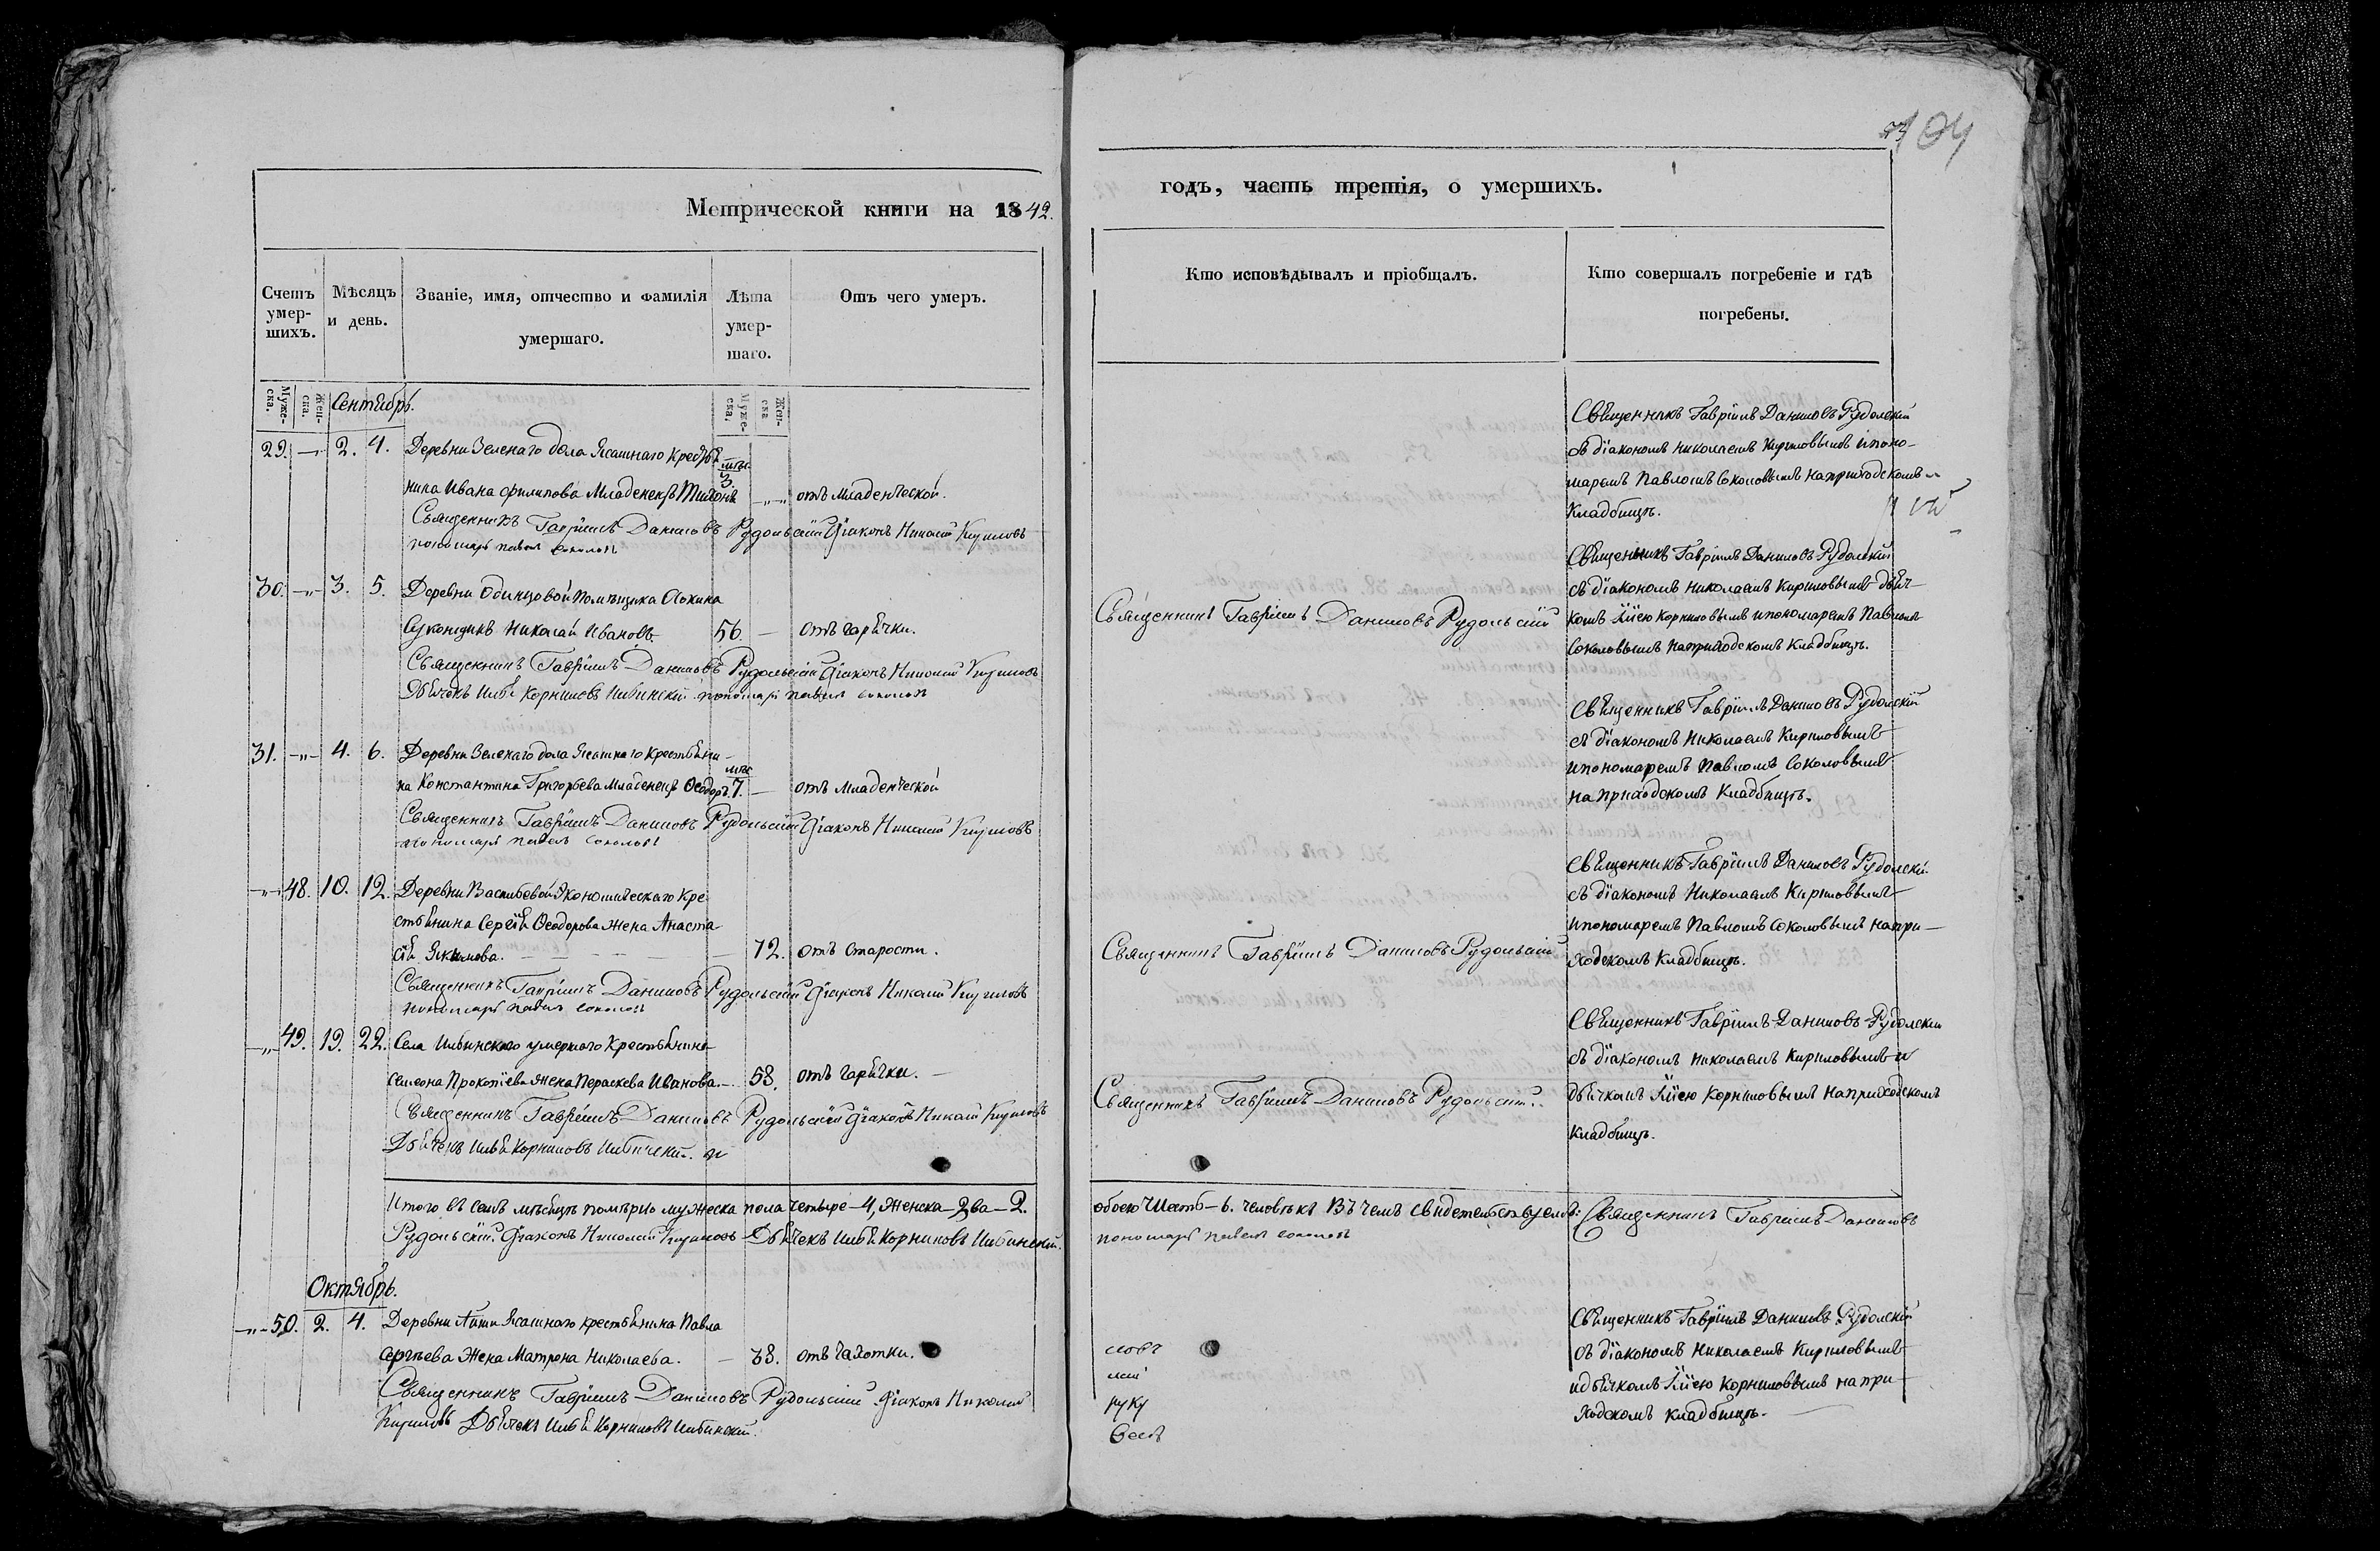 104
Метрической книги на 1842.
годъ, часть третія, о умершихъ.
Счетъ умер-шихъ.
Мѣсяцъ и день.
Званіе, имя, отчество и фамилія умершаго.
Лѣта умер-шаго.
Отъ чего умеръ.
Кто исповѣдывалъ и пріобщалъ.
Кто совершалъ погребеніе и гдѣ погребены.
Муже-ска.
Жен-ска.
Сентябрь.
Муже-ска.
Жен-ска
29. —„— 2. 4. Деревни Зеленаго дола Ясашнаго Крестья
нина Ивана Филипова Младенецъ Тихонъ 3. —„— отъ младенческой.
Священникъ Гавріилъ Даниловъ Рудольскій Діаконъ Николай Кириловъ
пономарь павелъ соколовъ
Священникъ Гавріилъ Даниловъ Рудольскій
съ діакономъ Николаемъ Кириловымъ ипоно-
маремъ Павломъ Соколовымъ наприходскомъ
Кладбищѣ.
30. —„— 3. 5. Деревни Одинцовой помѣщика Осокина
Суконщикъ Николай Ивановъ 56. — отъ гарячки.
Священникъ Гавріилъ Даниловъ Рудольскій Діаконъ Николай Кириловъ
Дьячекъ Илья Корниловъ Ильинскій пономарь павелъ соколовъ
Священникъ Гавріилъ Даниловъ Рудольскій
Священникъ Гавріилъ Даниловъ Рудольскій
съ діакономъ Николаемъ Кириловымъ дьяч-
комъ Ильею Корниловымъ ипономаремъ Павломъ
Соколовымъ наприходскомъ Кладбищѣ.
31. —„— 4. 6. Деревни Зеленаго дола Ясашнаго Крестьяни-
на Константина Григорьева Младенецъ Ѳеодоръ. 7. — отъ младенческой
Священникъ Гавріилъ Даниловъ Рудольскій Діаконъ Николай Кириловъ
пономарь павелъ соколовъ
Священникъ Гавріилъ Даниловъ Рудольскій
съ діакономъ Николаемъ Кириловымъ
ипономаремъ Павломъ Соколовымъ
на приходскомъ Кладбищѣ.
—„— 48. 10. 12. Деревни Васильевой Экономическаго Кре-
стьянина Сергія Ѳеодорова жена Анаста
сія Якимова. — 72. отъ старости.
Священникъ Гавріилъ Даниловъ Рудольскій Діаконъ Николай Кириловъ
пономарь павелъ соколовъ
Священникъ Гавріилъ Даниловъ Рудольскій
Священникъ Гавріилъ Даниловъ Рудольскій
съ діакономъ Николаемъ Кириловымъ
ипономаремъ Павломъ Соколовымъ напри-
ходскомъ Кладбищѣ.
—„— 49. 19. 22. Села Ильинскаго умершаго Крестьянина
Симеона Прокопіева жена Пераскева Иванова. — 58. отъ гарячки. —
Священникъ Гавріилъ Даниловъ Рудольскій Діаконъ Николай Кириловъ
Дьячекъ Илья Корниловъ Ильинскій.
Священникъ Гавріилъ Даниловъ Рудольскій.
Священникъ Гавріилъ Даниловъ Рудольскій
съ діакономъ Николаемъ Кириловымъ и
дьячкомъ Ильею Корниловымъ наприходскомъ
кладбищѣ.
Итого въ семъ мѣсяцѣ померло мужеска пола четыре — 4, Женска — Два — 2.
обоего шесть — 6. человѣкъ Въ чемъ свидетельствуемъ: Священникъ Гавріилъ Даниловъ
Рудольскій. Діаконъ Николай Кириловъ Дьячекъ Илья Корниловъ Ильинскій.
пономарь павелъ соколовъ
Октябрь.
—„— 50. 2. 4. Деревни Ясашнаго крестьянина Павла
Сергѣева жена Матрона Николаева. — 38. отъ чахотки.
Священникъ Гавріилъ Даниловъ Рудольскій Діаконъ Николай
Кириловъ Дьячекъ Илья Корниловъ Ильинскій.
руку
Священникъ Гавріилъ Даниловъ Рудольскій
съ діакономъ Николаемъ Кириловымъ
идьячкомъ Ильею Корниловымъ напри-
ходскомъ кладбищѣ. —